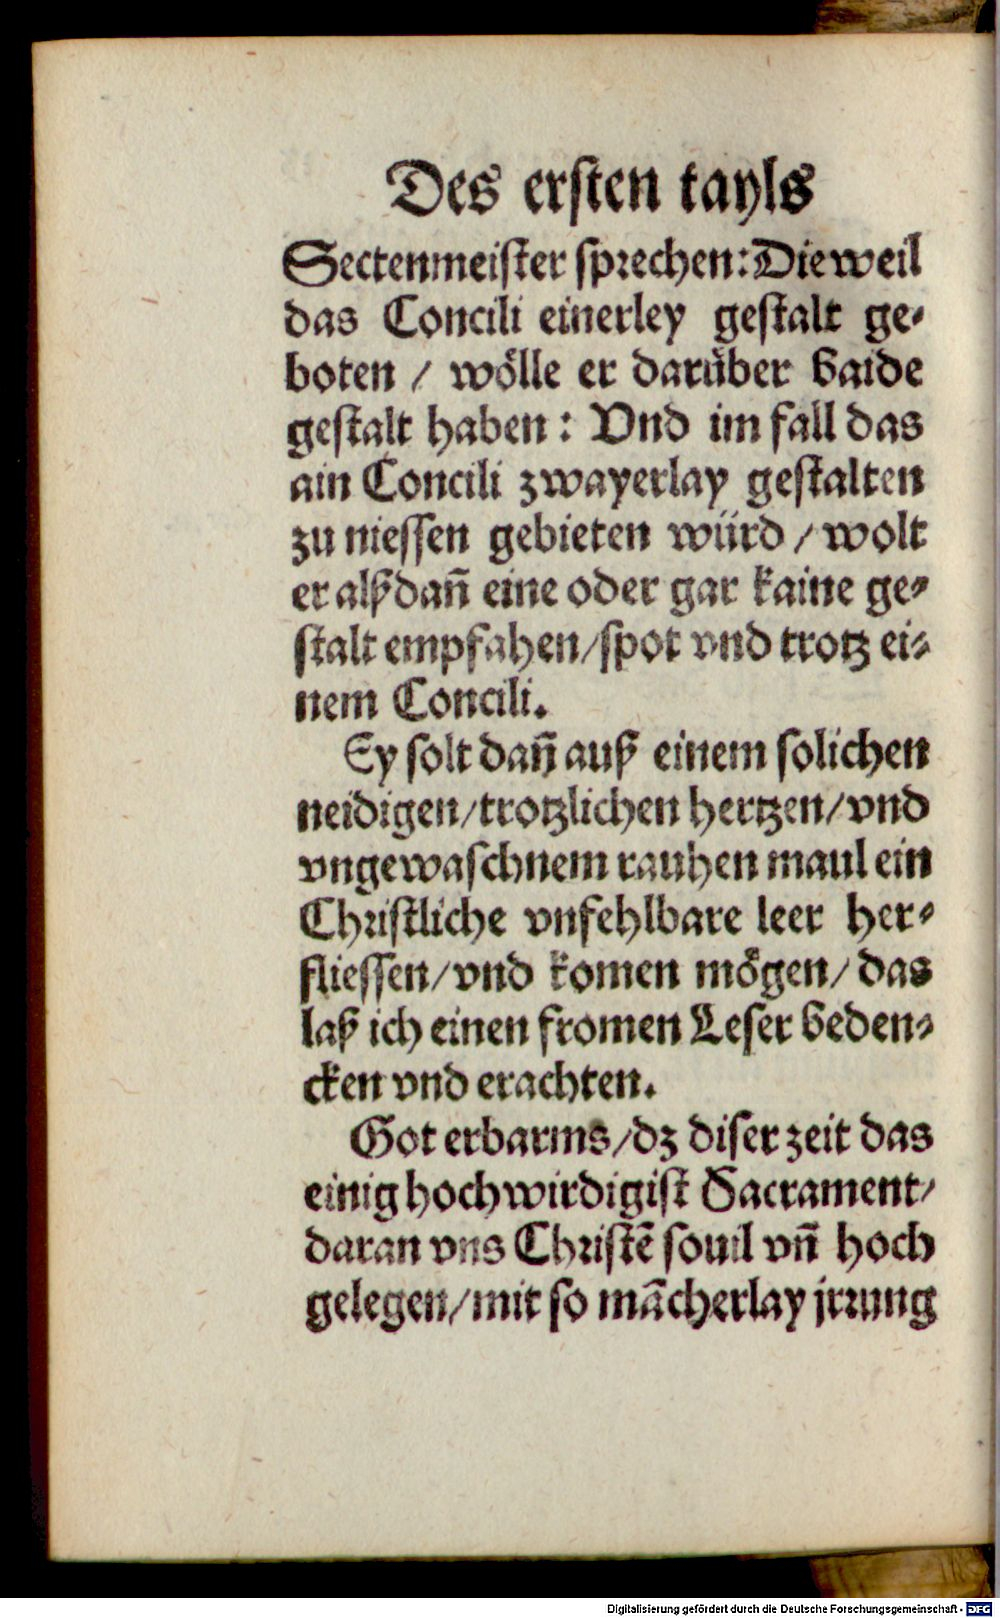 Des ersten tayls
Sectenmeister sprechen: Dieweil
das Concili einerley gestalt ge⸗
boten / wölle er darüber baide
gestalt haben: Vnd im fall das
ain Concili zwayerlay gestalten
zu niessen gebieten würd / wolt
er alßdañ eine oder gar kaine ge⸗
stalt empfahen / spot vnd trotz ei⸗
nem Concili.
Ey solt dañ auß einem solichen
neidigen / trotzlichen hertzen / vnd
vngewaschnem rauhen maul ein
Christliche vnfehlbare leer her⸗
fliessen / vnd komen mögen / das
laß ich einen fromen Leser beden⸗
cken vnd erachten.
Got erbarms / dz diser zeit das
einig hochwirdigist Sacrament /
daran vns Christē souil vñ hoch
gelegen / mit so mācherlay jrrung
Digitalisierung gefördert durch die Deutsche Forschungsgemeinschaft - DFG